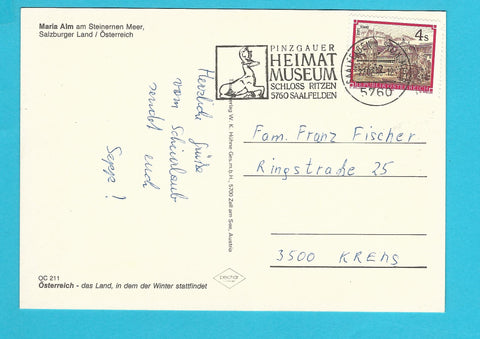 Maria Alm am Steinernen Meer,
Salzburger Land / Österreich
Herzliche Grüße
vom Schiurlaub
sendet euch
Sepp!
QC 211
Österreich - das Land, in dem der Winter stattfindet
Verlag W. K. Hühne Ges.m.b.H., 5700 Zell am See, Austria
PINZGAUER
HEIMAT
MUSEUM
SCHLOSS RITZEN
5760 SAALFELDEN
5760
4s
REPUBLIK ÖSTERREICH
Fam. Franz Fischer
Ringstraße 25
3500 KREMS